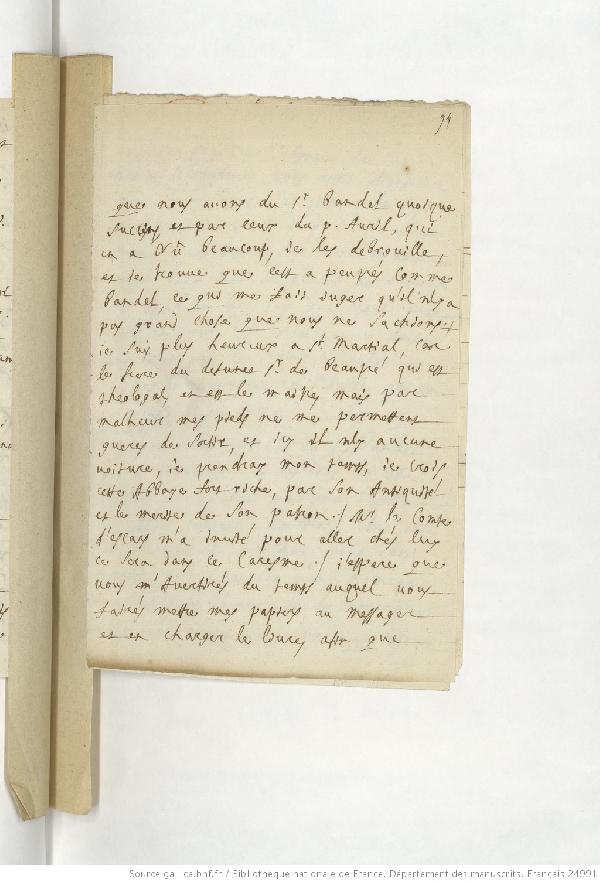 94
que nous avons du Sr. Bandel quoique
succins et par ceux du p. Avril, qui
en a vû beaucoup, ie les debrouille,
et ie trouve que cest a peuprés comme
Bandel, ce qui me fait iuger qu'il n'y a
pas grand chose que nous ne sachions./
ie suis plus heureux a St. Martial, car
le frere du defunct Sr. de Beaupré qui est
theologal, en est le maistre mais par
malheur mes pieds ne me permettent
gueres de sortir, et icy il n'y aucune
voiture, ie prendray mon temps, ie crois
cette Abbaye fort riche, par son Antiquité
et le merite de son patron./ Mr. le Comte
d'escars m'a invité pour aller chés luy
ce sera dans le Caresme./ i'espere que
vous m'Avertirés du temps auquel vous
fairés mettre mes papiers au messager
et en charger le livre, afin que
Source gallica.bnf.fr / Bibliothèque nationale de France. Département des manuscrits. Français 24991